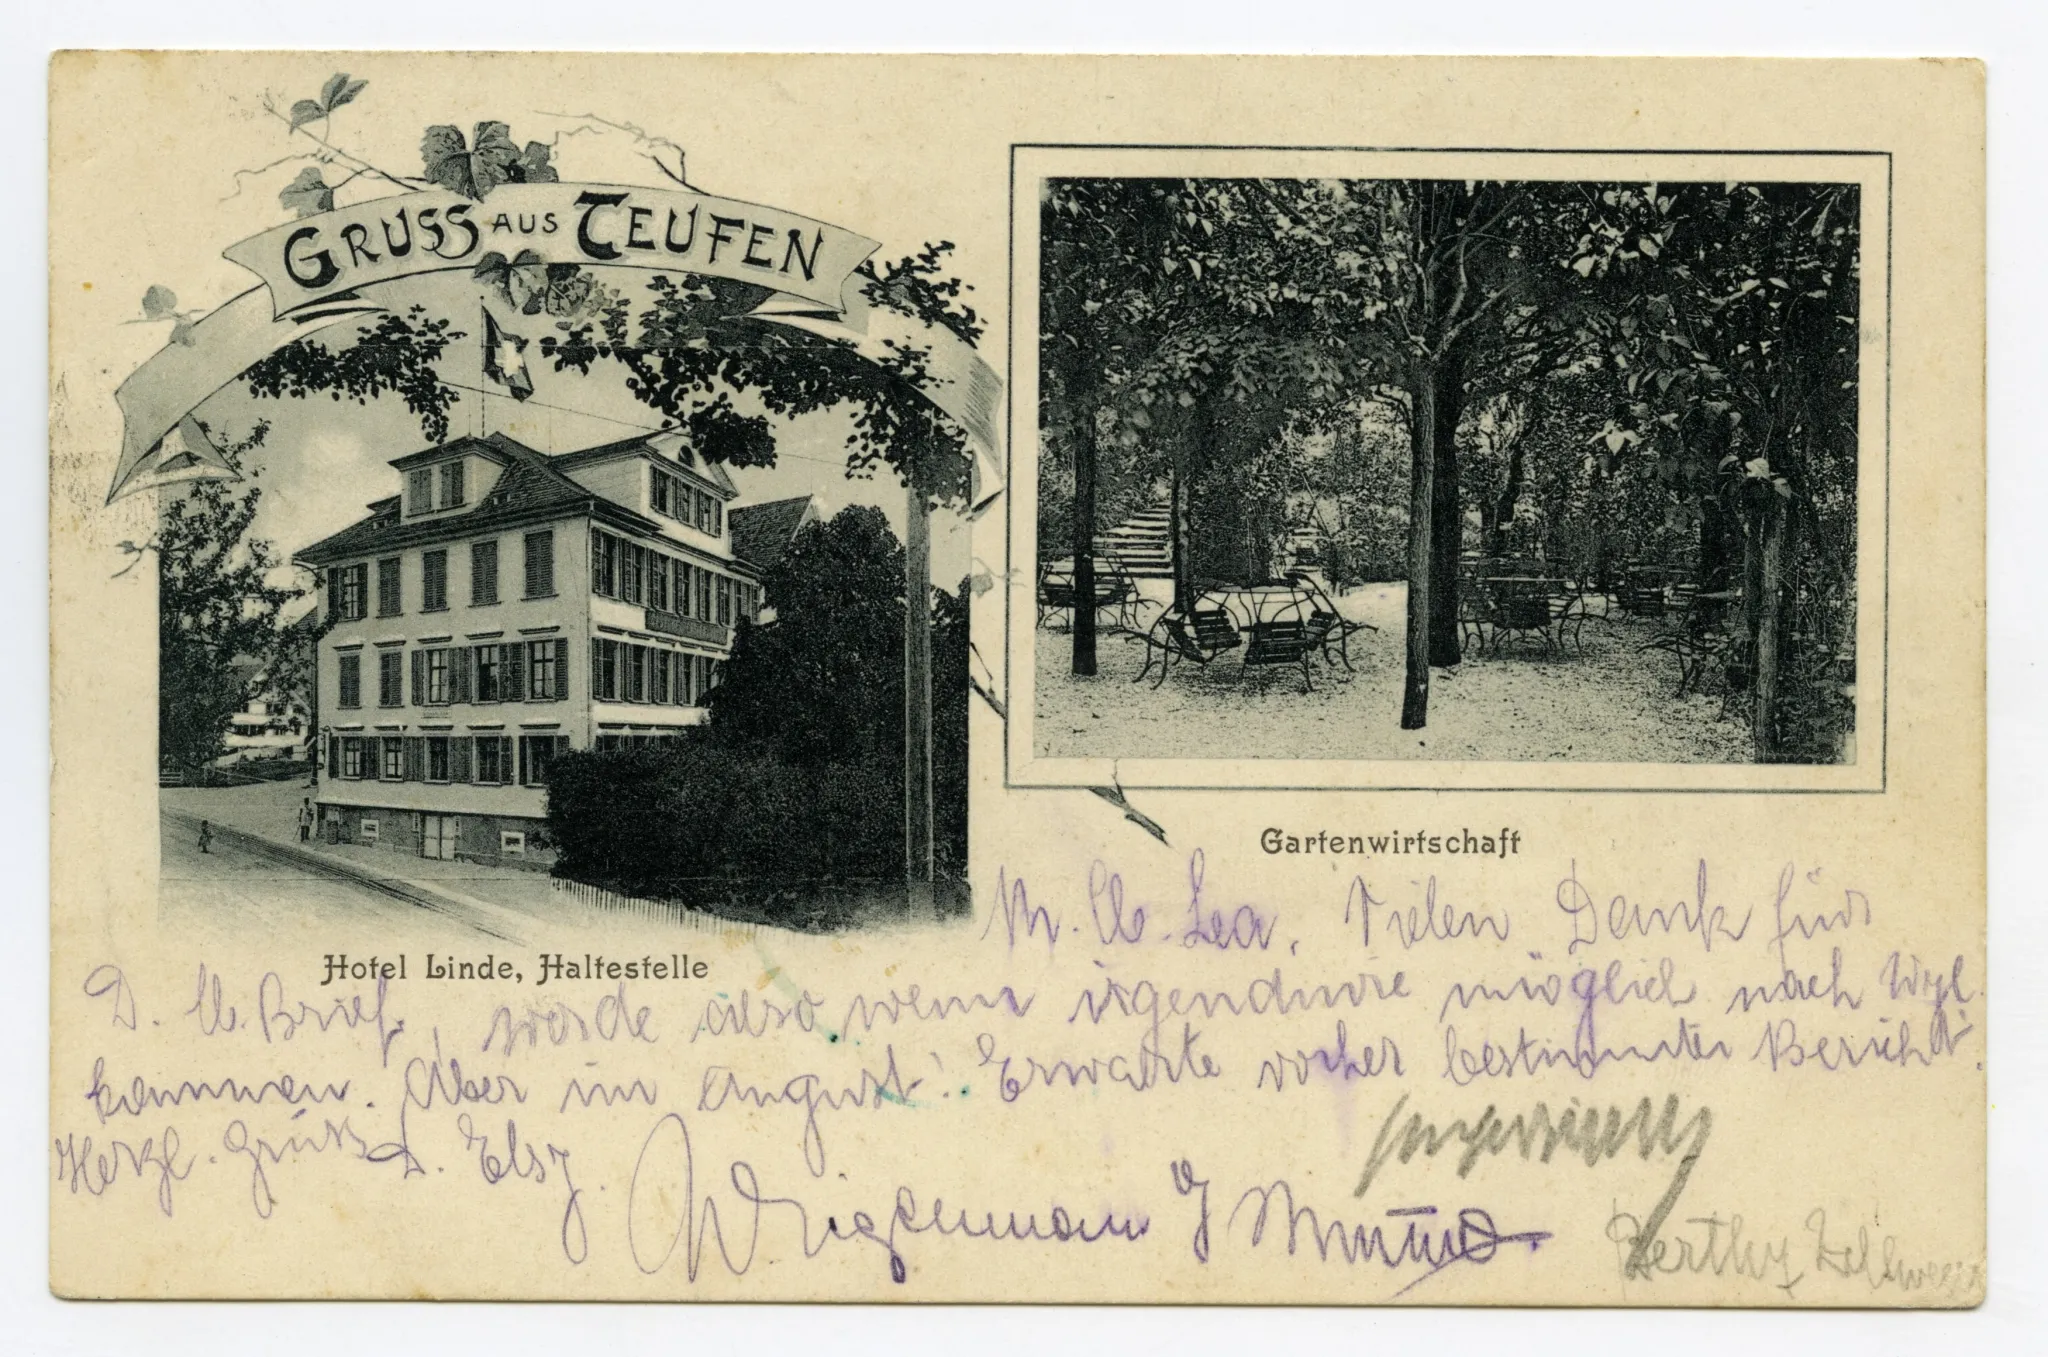 GRUSS AUS TEUFEN
Hotel Linde, Haltestelle
Gartenwirtschaft
M. lb. Lea, Vielen Dank für
D. lb. Brief, werde also wenn irgendwie möglich nach Wyl
kommen. Aber im August! Erwarte vorher bestimmten Bericht.
Herzl. Gruss D. Elsy.
Berthy